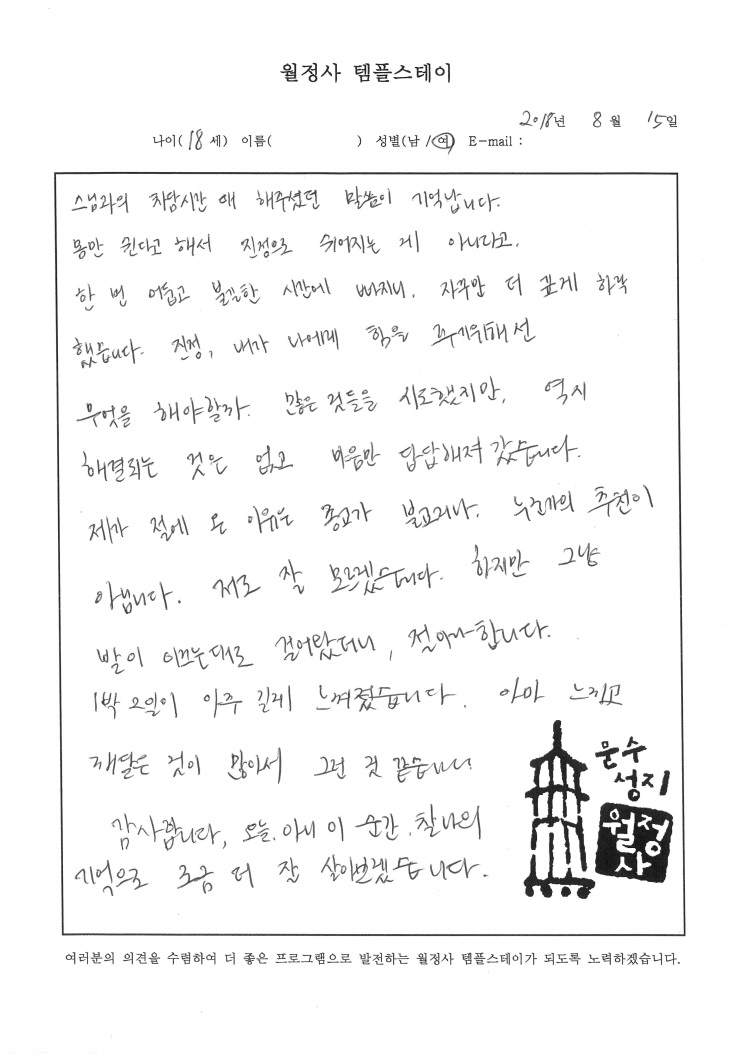 월정사 템플스테이
2018년 8월 15일
나이( 18 세) 이름( ) 성별(남 / 여) E-mail :
스님과의 차담시간 때 해주셨던 말씀이 기억납니다.
몸만 쉰다고 해서 진정으로 쉬어지는 게 아니라고.
한 번 어둡고 불길한 시간에 빠지니, 자꾸만 더 깊게 하락
했습니다. 진정, 내가 나에게 힘을 주기위해선
무엇을 해야할까. 많은 것들을 시도했지만, 역시
해결되는 것은 없고 마음만 답답해져 갔습니다.
제가 절에 온 이유는 종교가 불교거나, 누군가의 추천이
아닙니다. 저도 잘 모르겠습니다. 하지만 그냥
발이 이끄는대로 걸어왔더니, 합니다.
1박 2일이 아주 길게 느껴졌습니다. 아마 느끼고
깨달은 것이 많아서 그런 것 같습니다
감사합니다, 오늘. 아니 이 순간. 찰나의
기억으로 조금 더 잘 살아보겠습니다.
문수
성지
월정
사
여러분의 의견을 수렴하여 더 좋은 프로그램으로 발전하는 월정사 템플스테이가 되도록 노력하겠습니다.